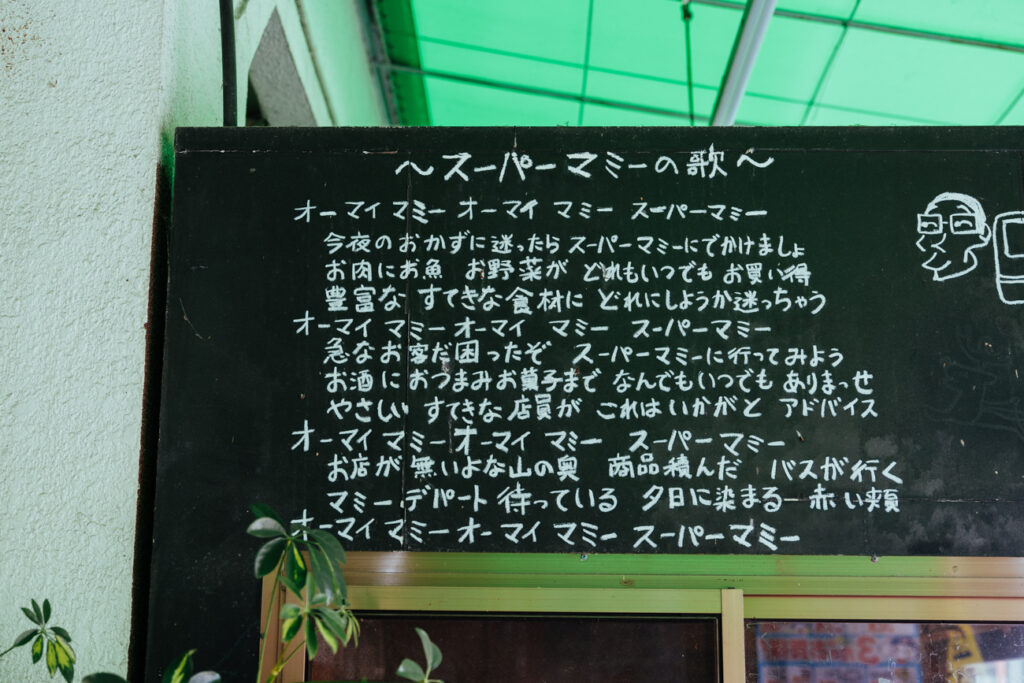 ～スーパーマミーの歌～
オーマイ マミー オーマイ マミー スーパーマミー
今夜のおかずに迷ったら スーパーマミーにでかけましょ
お肉にお魚 お野菜が どれもいつでも お買い得
豊富な すてきな食材に どれにしようか迷っちゃう
オーマイ マミー オーマイ マミー スーパーマミー
急なお客だ困ったぞ スーパーマミーに行ってみよう
お酒におつまみお菓子まで なんでもいつでも ありまっせ
やさしい すてきな店員が これはいかがと アドバイス
オーマイ マミー オーマイ マミー スーパーマミー
お店が無いよな山の奥 商品積んだ バスが行く
マミーデパート 待っている 夕日に染まる 赤い頬
オーマイマミー オーマイ マミー スーパーマミー